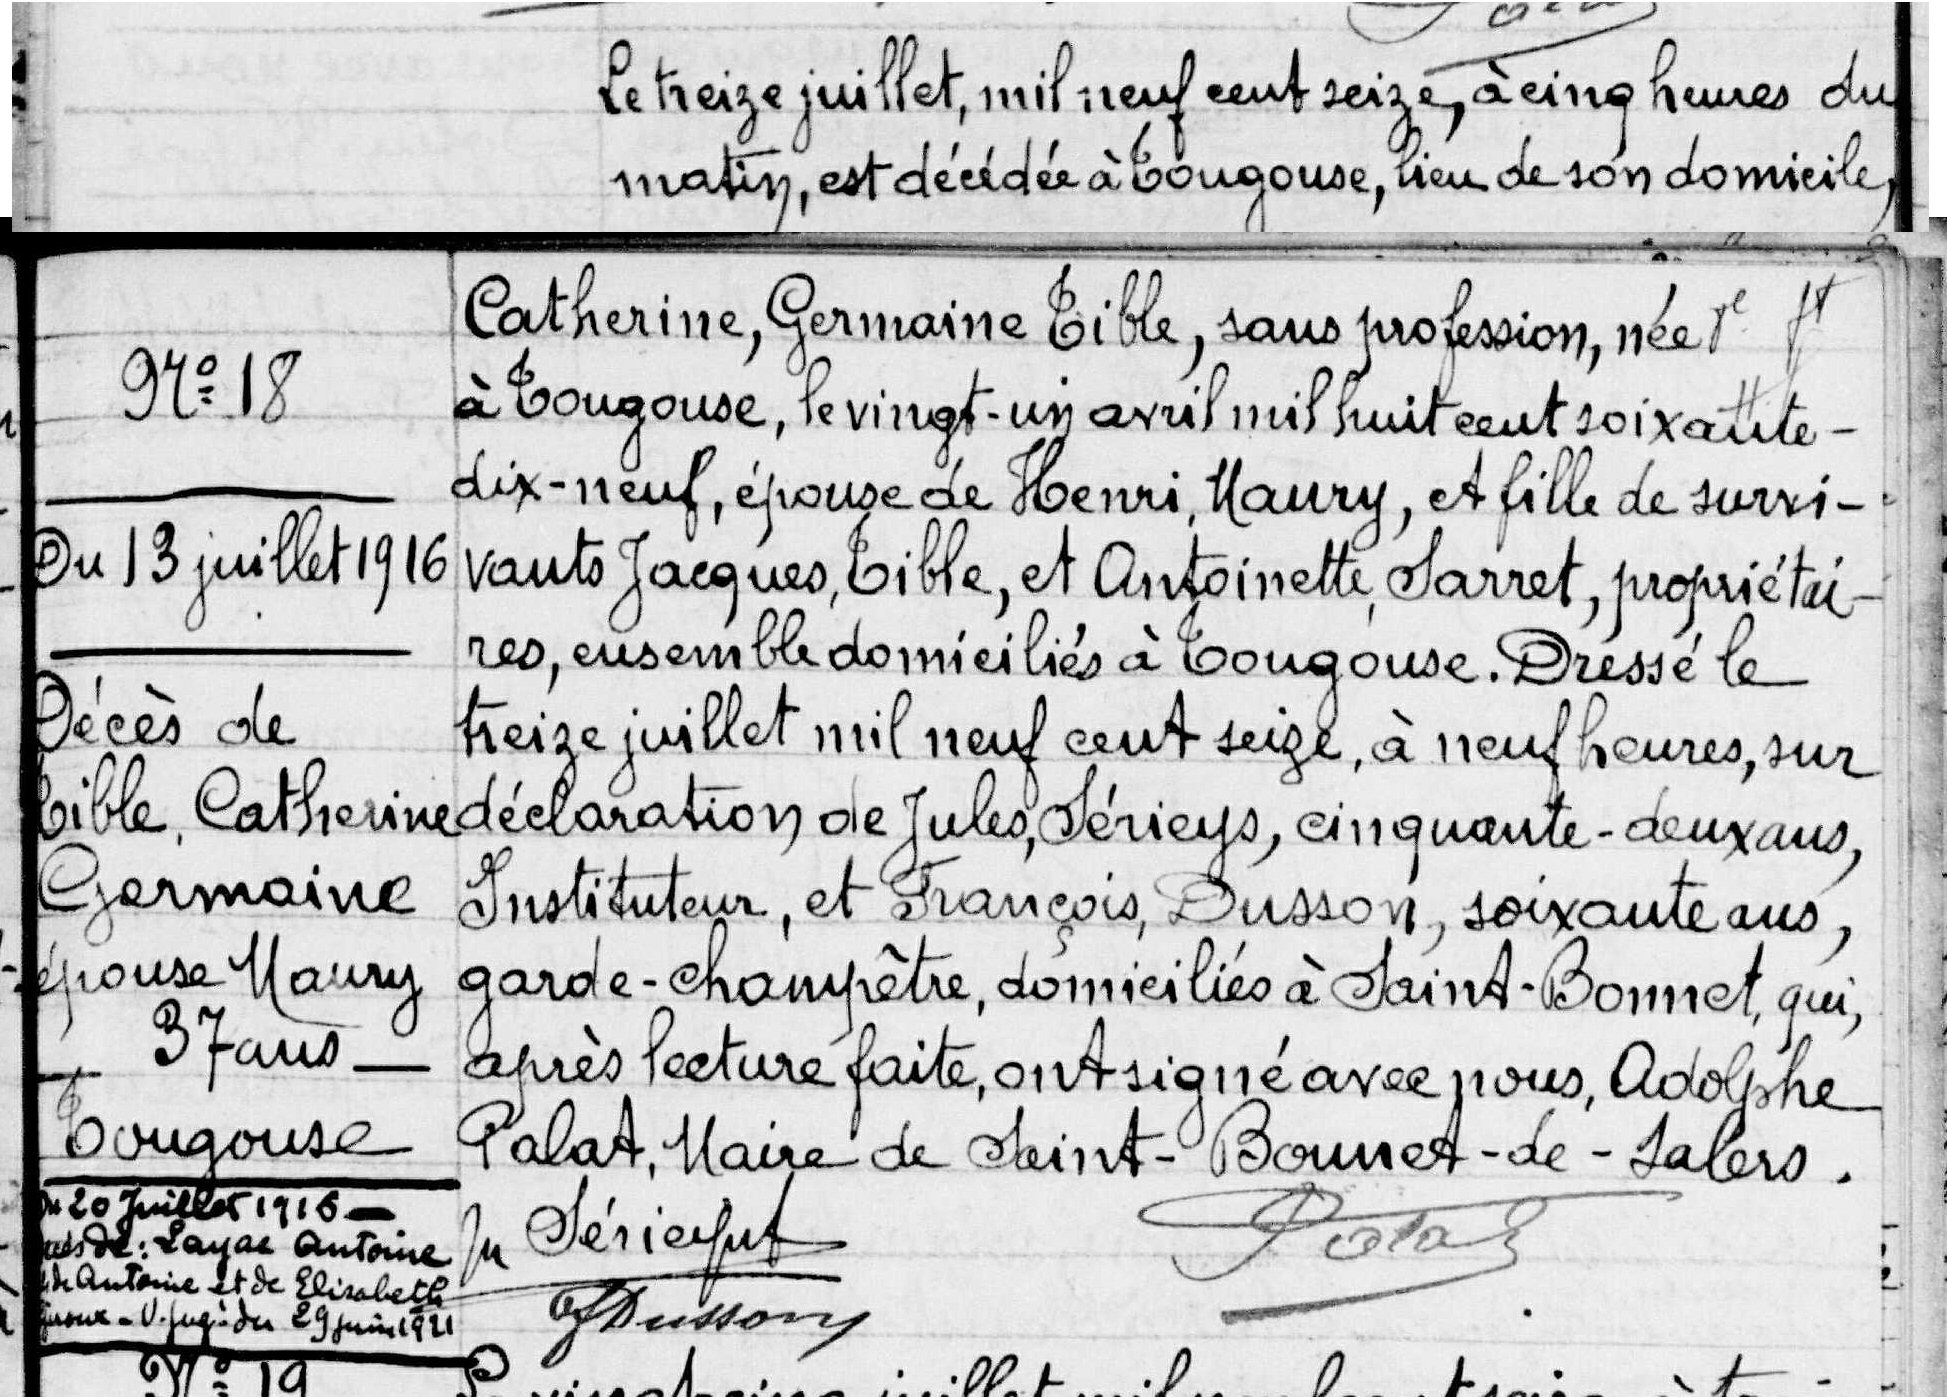 Le treize juillet, mil neuf cent seize, à cinq heures du
matin, est décédée à Tougouse, lieu de son domicile,
Catherine, Germaine Tible, sans profession, née
à Tougouse, le vingt-un avril mil huit cent soixante-
dix-neuf, épouse de Henri, Maury, et fille de survi-
vants Jacques, Tible, et Antoinette, Sarret, propriétai-
res, ensemble domiciliés à Tougouse. Dressé le
treize juillet mil neuf cent seize, à neuf heures, sur
déclaration de Jules, Sérieys, cinquante-deux ans,
Instituteur, et François, Dusson, soixante ans,
garde-champêtre, domiciliés à Saint-Bonnet, qui,
après lecture faite, ont signé avec nous, Adolphe
Palat, Maire de Saint-Bonnet-de-Salers.
Sérieys
Palat
Dusson
No 18
Du 13 juillet 1916
Décès de
Tible, Catherine
Germaine
épouse Maury
37 ans
Tougouse
Du 20 Juillet 1916
décès de: Layac Antoine
de Antoine et de Elisabeth
V. jug. du 29 juin 1921
No 19